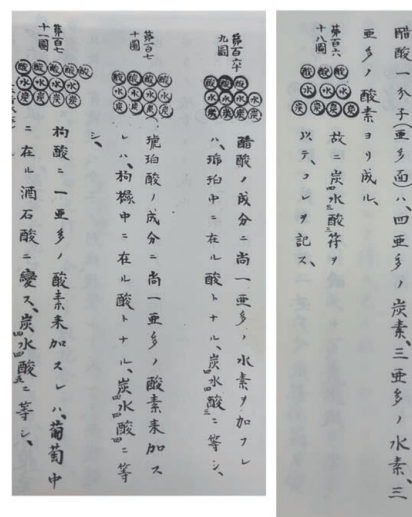 醋酸一分子(亜多面)ハ、四亜多ノ炭素、三亜多ノ水素、三
亜多ノ酸素ヨリ成ル、
第百六
十八圖
酸酸酸
水水水
炭炭炭炭
故ニ炭四水三酸三符ヲ
以テ、コレヲ記ス、
第百六十
九圖
酸酸酸
水水水水
炭炭炭炭
醋酸ノ成分ニ尚一亜多ノ水素ヲ加フレ
ハ、琥珀中ニ在ル酸トナル、炭四水四酸三ニ等シ、
第百七
十圖
酸酸酸酸
水水水水
炭炭炭炭
琥珀酸ノ成分ニ尚一亜多ノ酸素来加ス
レハ、枸櫞中ニ在ル酸トナル、炭四水四酸四ニ等
シ、
第百七
十一圖
酸酸酸酸酸
水水水水
炭炭炭炭
枸酸ニ一亜多ノ酸素来加スレハ、葡萄中
ニ在ル酒石酸ニ變ス、炭四水四酸五ニ等シ、